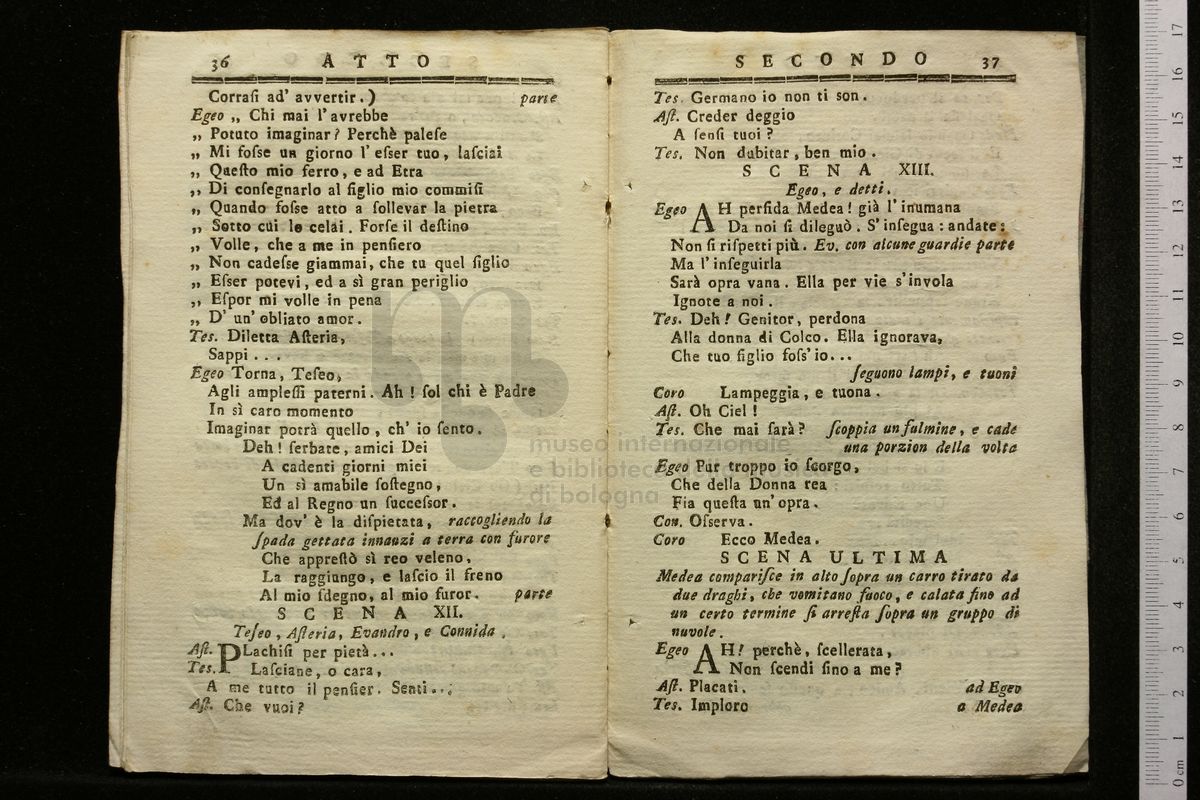 36 ATTO
Corraſi ad' avvertir.) parte
Egeo „ Chi mai l'avrebbe
„ Potuto imaginar? Perchè paleſe
„ Mi foſse un giorno l'eſser tuo, laſciai
„ Queſto mio ferro, e ad Etra
„ Di conſegnarlo al figlio mio commiſi
„ Quando foſse atto a ſollevar la pietra
„ Sotto cui lo celai. Forſe il deſtino
„ Volle, che a me in penſiero
„ Non cadeſse giammai, che tu quel figlio
„ Eſser potevi, ed a sì gran periglio
„ Eſpor mi volle in pena
„ D' un' obliato amor.
Tes. Diletta Aſteria,
Sappi...
Egeo Torna, Teſeo,
Agli ampleſſi paterni. Ah! ſol chi è Padre
In sì caro momento
Imaginar potrà quello, ch' io ſento.
Deh! ſerbate, amici Dei
A cadenti giorni miei
Un sì amabile ſoſtegno,
Ed al Regno un ſucceſſor.
Ma dov' è la diſpietata, raccogliendo la
ſpada gettata innauzi a terra con furore
Che appreſtò sì reo veleno,
La raggiungo, e laſcio il freno
Al mio ſdegno, al mio furor. parte
SCENA XII.
Teſeo, Aſteria, Evandro, e Connida.
Aſt. PLachiſi per pietà...
Tes. Laſciane, o cara,
A me tutto il penſier. Senti...
Aſt. Che vuoi?
SECONDO 37
Tes. Germano io non ti son.
Aſt. Creder deggio
A ſenſi tuoi?
Tes. Non dubitar, ben mio.
SCENA XIII.
Egeo, e detti.
Egeo AH perfida Medea! già l'inumana
Da noi ſi dileguò. S'inſegua: andate:
Non ſi riſpetti più. Ev. con alcune guardie parte
Ma l'inſeguirla
Sarà opra vana. Ella per vie s'invola
Ignote a noi.
Tes. Deh! Genitor, perdona
Alla donna di Colco. Ella ignorava,
Che tuo figlio foſs'io...
ſeguono lampi, e tuoni
Coro Lampeggia, e tuona.
Aſt. Oh Ciel!
Tes. Che mai ſarà? ſcoppia un fulmine, e cade
una porzion della volta
Egeo Pur troppo io ſcorgo,
Che della Donna rea
Fia queſta un'opra.
Con. Oſserva.
Coro Ecco Medea.
SCENA ULTIMA
Medea compariſce in alto ſopra un carro tirato da
due draghi, che vomitano fuoco, e calata fino ad
un certo termine ſi arreſta ſopra un gruppo di
nuvole.
Egeo AH! perchè, ſcellerata,
Non ſcendi ſino a me?
Aſt. Placati. ad Egeo
Tes. Imploro a Medea
museo internazionale
e biblioteca della musica
di bologna
0 cm 1 2 3 4 5 6 7 8 9 10 11 12 13 14 15 16 17